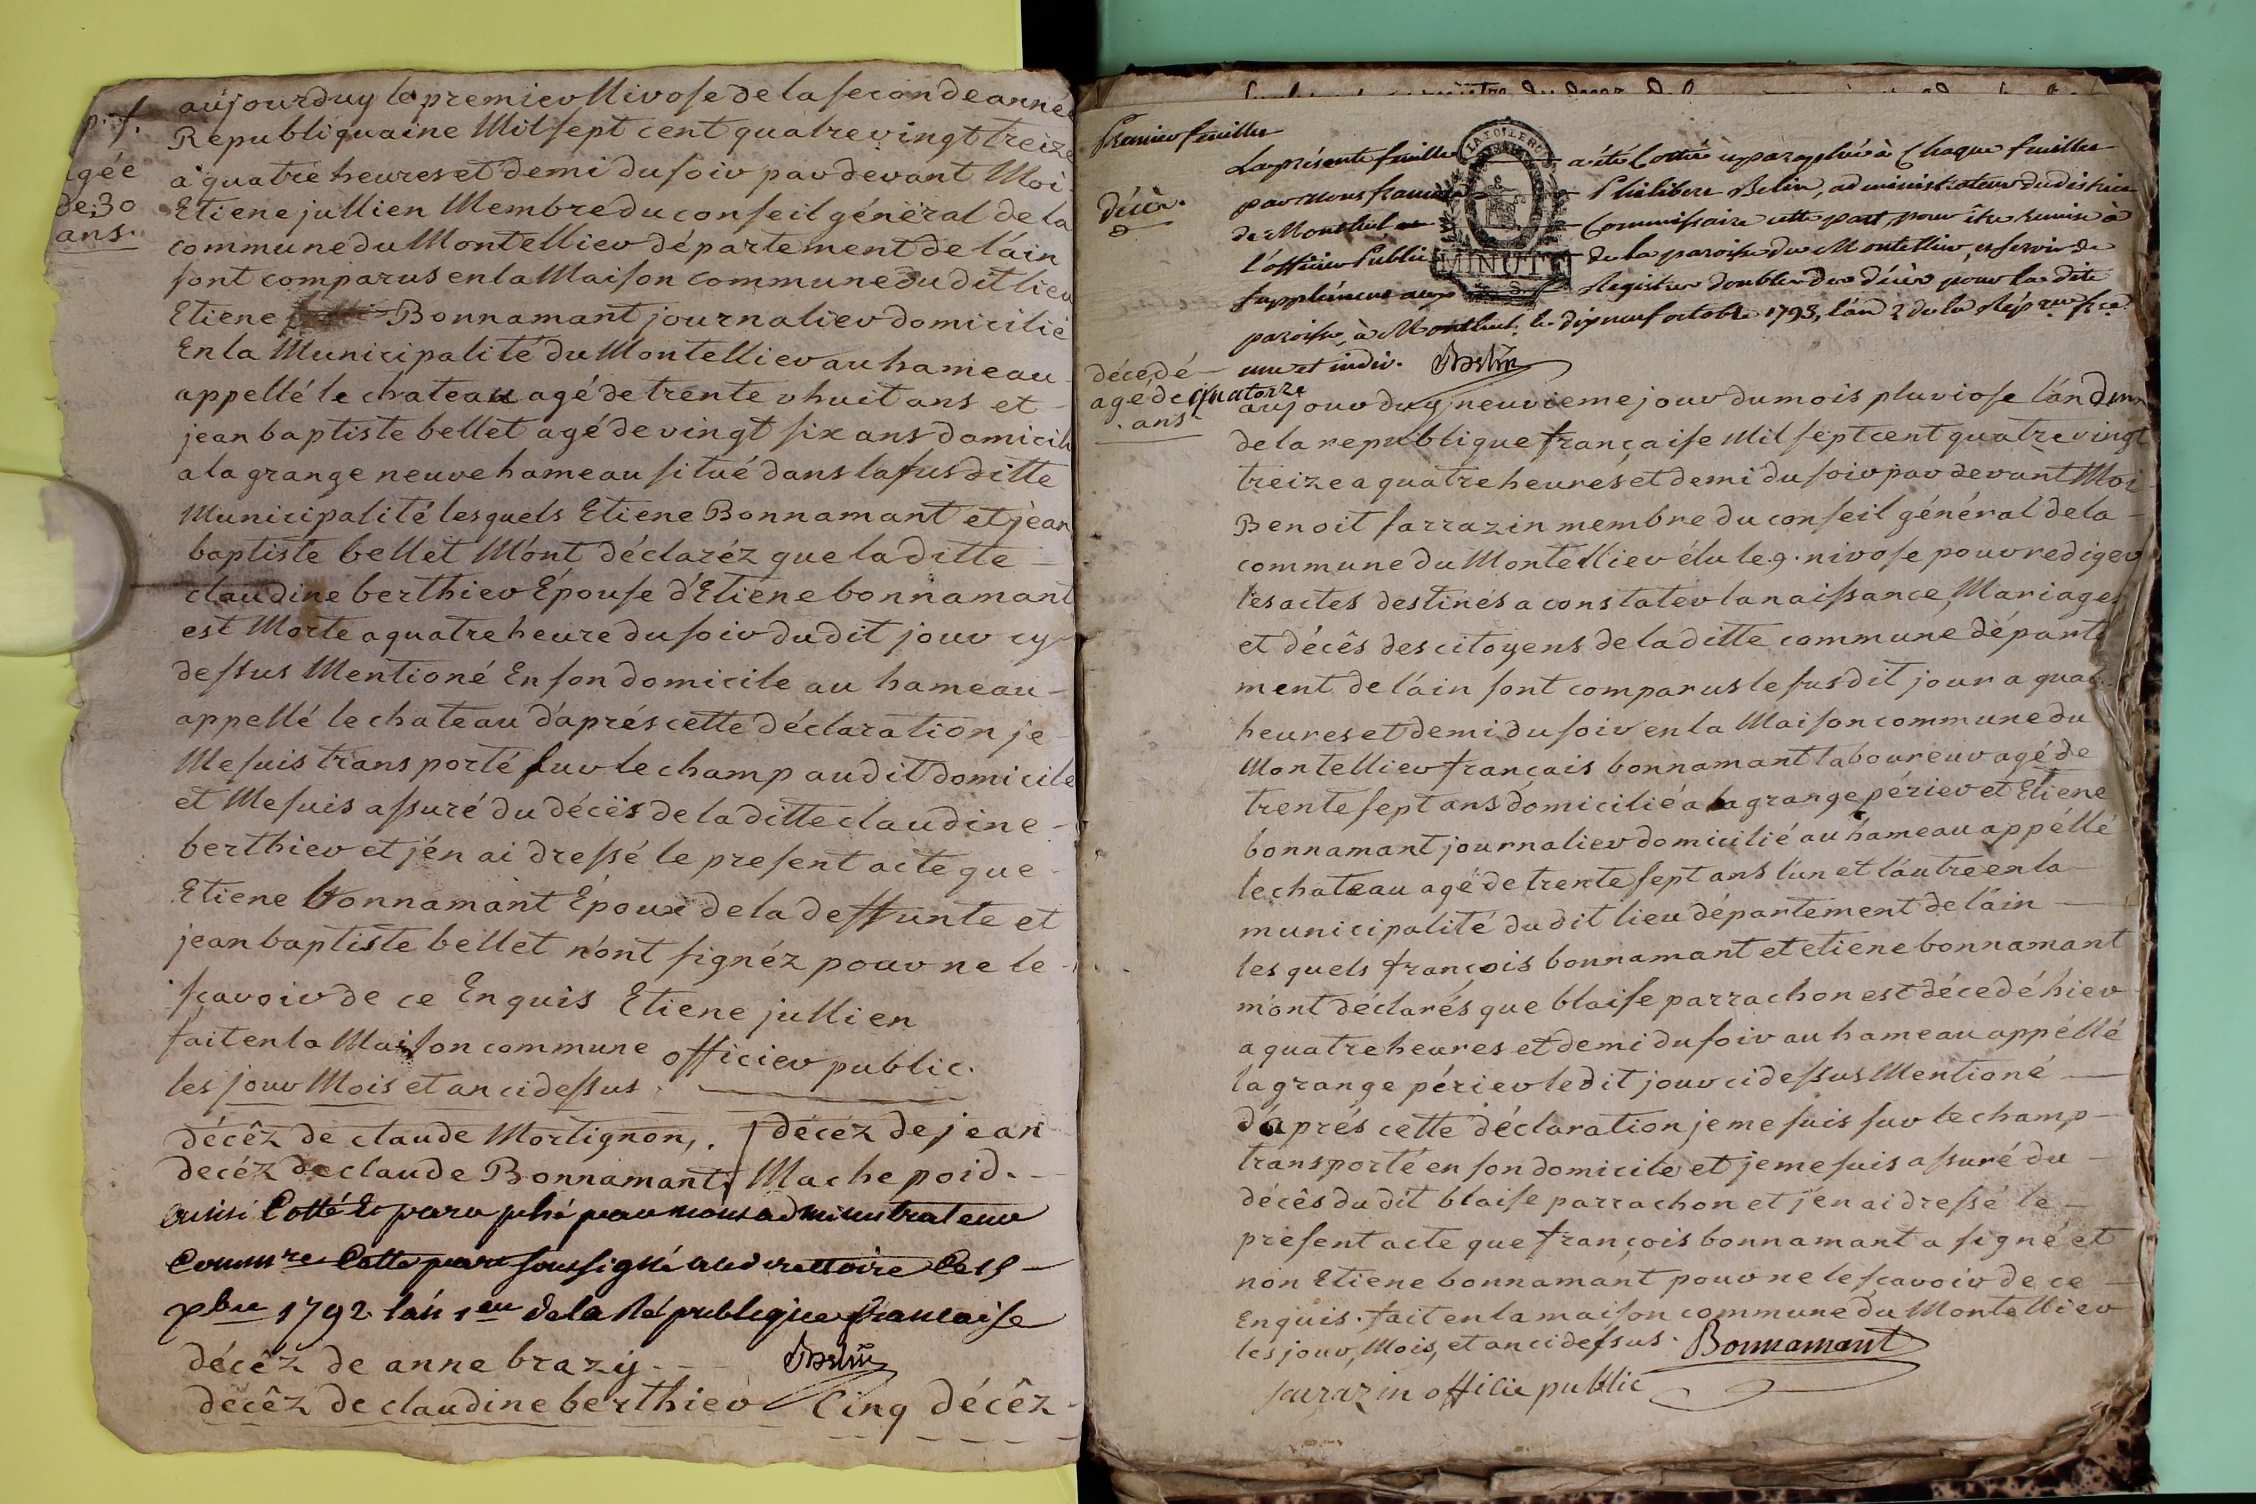 p. 1.
agée
de 30
ans.
aujourduy le premier Nivose de la seconde année
Republiquaine Mil sept cent quatre vingt treize
a quatre heures et demi du soir par devant Moi
Etiene jullien Membre du conseil général de la
commune du Montellier département de l'ain
sont comparus en la Maison commune du dit lieu
Etiene Bonnamant journalier domicilié
En la Municipalité du Montellier au hameau
appellé le chateau agé de trente huit ans et
jean baptiste bellet agé de vingt six ans domicilié
a la grange neuve hameau situé dans la susditte
Municipalité lesquels Etiene Bonnamant et jean
baptiste bellet M'ont déclaréz que la ditte
claudine berthier Épouse d'Etiene bonnamant
est Morte a quatre heure du soir du dit jour cy
dessus Mentioné En son domicile au hameau
appellé le chateau d'aprés cette déclaration je
Me suis transporté sur le champ au dit domicile
et Me suis assuré du décès de la ditte claudine
berthier et j'én ai dressé le present acte que
Etiene bonnamant Époux de la deffunte et
jean baptiste bellet n'ont signéz pour ne le
sçavoir de ce Enquis Etiene jullien
fait en la Maison commune officier public.
les jour Mois et an ci dessus.
décêz de claude Mortignon, . décéz de jean
decéz de claude Bonnamant, Mache poid.
ainsi Cotté et paraphé par nous administrateur
Commre Cette part soussigné au directtoire Ce 15
xbre 1792 l'an 1er de la République francaise
décêz de anne brazy. Belin
décêz de claudine berthier Cinq décêz
Premier feuillet
décès.
La présente feuille a été Cottée et paraphée à Chaque feuillet
par nous francois Philibert Belin, administrateur du district
de Montluel Commissaire cette part, pour être remise à
l'officier Public de la paroisse du Montellier, et servir de
supplément aux Registres doubles des décès pour la dite
paroisse, à Montluel, le dix neuf octobre 1793, l'an 2 de la Répque frce
une et indiv. Belin
décédé
agé de quatorze
ans
aujourduy neuvieme jour du mois pluviose l'án deux
de la republique française Mil sept cent quatre vingt
treize a quatre heures et demi du soir par devant Moi
Benoit sarrazin membre du conseil général de la
commune du Montellier élu le 9. nivose pour rediger
les actes destinés a constater la naissance, Mariages
et décês des citoyens de la ditte commune départe
ment de l'áin sont comparus le susdit jour a quat
heures et demi du soir en la Maison commune du
Montellier français bonnamant laboureur agé de
trente sept ans domicilié a la grange périer et Etiene
bonnamant journalier domicilié au hameau appéllé
le chateau agé de trente sept ans l'un et l'autre en la
municipalité du dit lieu département de l'áin
les quels françois bonnamant et etiene bonnamant
m'ont déclarés que blaise parrachon est décedé hier
a quatre heures et demi du soir au hameau appéllé
la grange périer ledit jour ci dessus Mentioné
d'áprés cette déclaration je me suis sur le champ
transporté en son domicile et je me suis assuré du
décês du dit blaise parrachon et j'én ai dressé le
présent acte que françois bonnamant a signé et
non Etiene bonnamant pour ne le sçavoir de ce
Enquis. fait en la maison commune du Montellier
les jour, Mois, et an ci dessus. Bonnamant
sarazin officie public
MINUTE